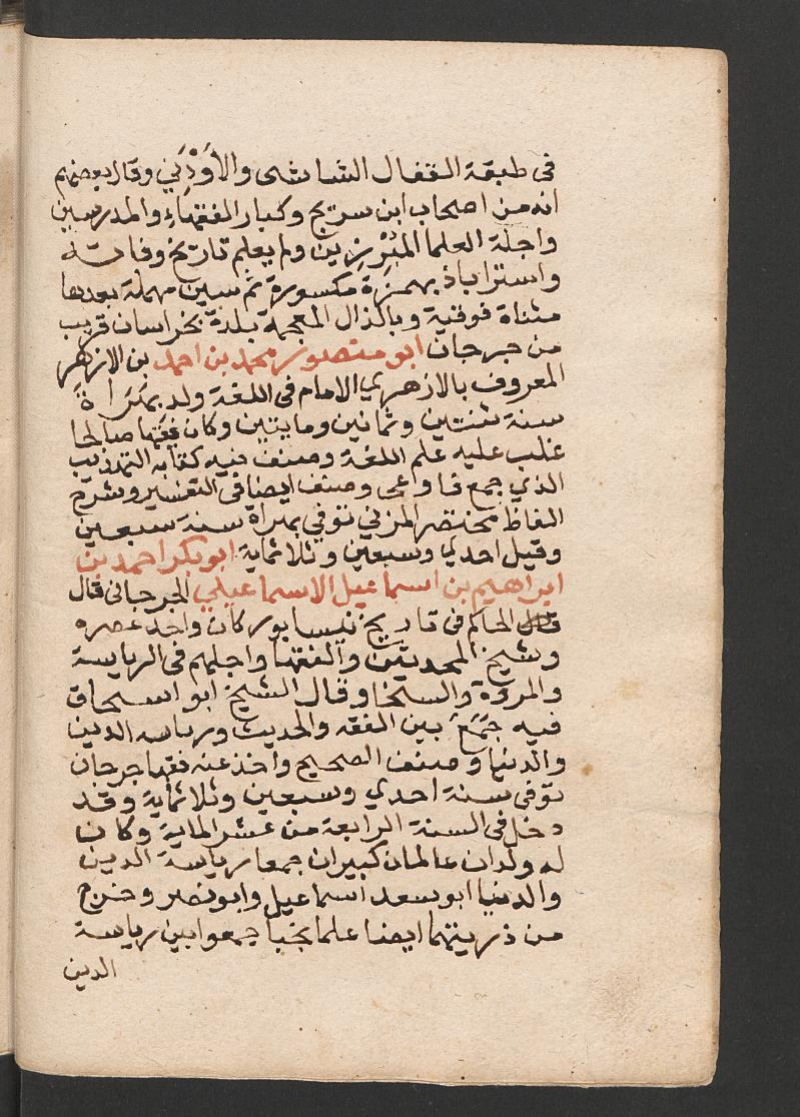 فى طبقة القفال الشاشى والأَوْدَني وقال بعضهم
انه من اصحاب ابن سريج وكبار الفقهاء والمدرسين
واجلة العلما المبْرِزِين ولم يعلم تاريخ وفاته
واستراباذ بهمزة مكسورة ثم سين مهملة بعدها
مثناة فوقية وبالذال المعجمة بلدة بخراسان قريب
من جرجان ابو منصور محمد بن احمد بن الازهر
المعروف بالازهري الامام فى اللغة ولد بهَرَاةَ
سنة ثنتين وثمانين ومايتين وكان فقيها صالحا
غلب عليه علم اللغة وصنف فيه كتابه التهذيب
الذي جمع فاوعى وصنف ايضا فى التفسير وشرح
الفاظ مختصر المزني توفي بهراة سنة سبعين
وقيل احدي وسبعين وثلاثماية ابو بكر احمد بن
ابراهيم بن اسماعيل الاسماعيلي الجرجانى قال
قال الحاكم فى تاريخ نيسابور كان واحد عصره
وشيخ المحدثين والفقها واجلهم فى الرياسة
والمروة والسخا وقال الشيخ ابو اسحاق
فيه جَمَعَ بين الفقه والحديث ورياسه الدين
والدنيا وصنف الصحيح واخذ عنه فقها جرجان
توفى سنة احدي وسبعين وثلاثماية وقد
دخل فى السنة الرابعة من عشر الماية وكان
له ولدان عالمان كبيران جمعا رياسة الدين
والدنيا ابو سعد اسماعيل وابو نصر وخرج
من ذريتهما ايضا علما نجبا جمعوا بين رياسة
الدين